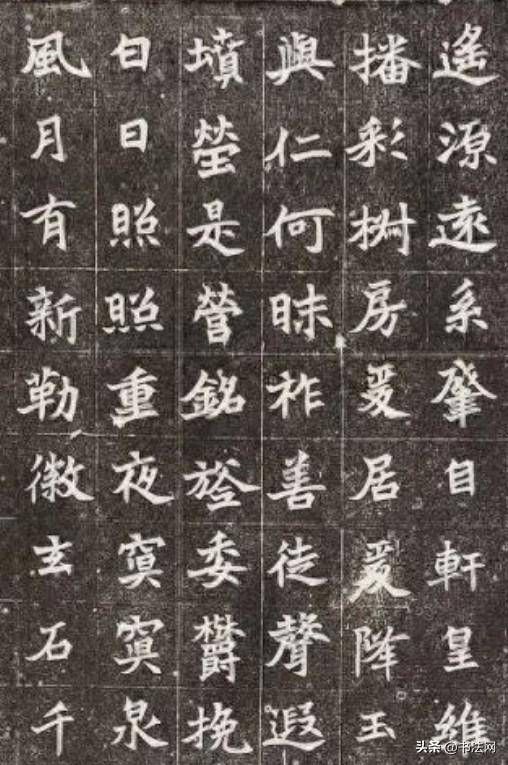 遙源遠系肇自軒皇維
播彩椒房爰居爰降玉
與仁何昧祚善徒聲遐
墳塋是營銘旌委欝挽
白日照照重夜冥冥泉
風月有新勒徽玄石千
头条 @书法网